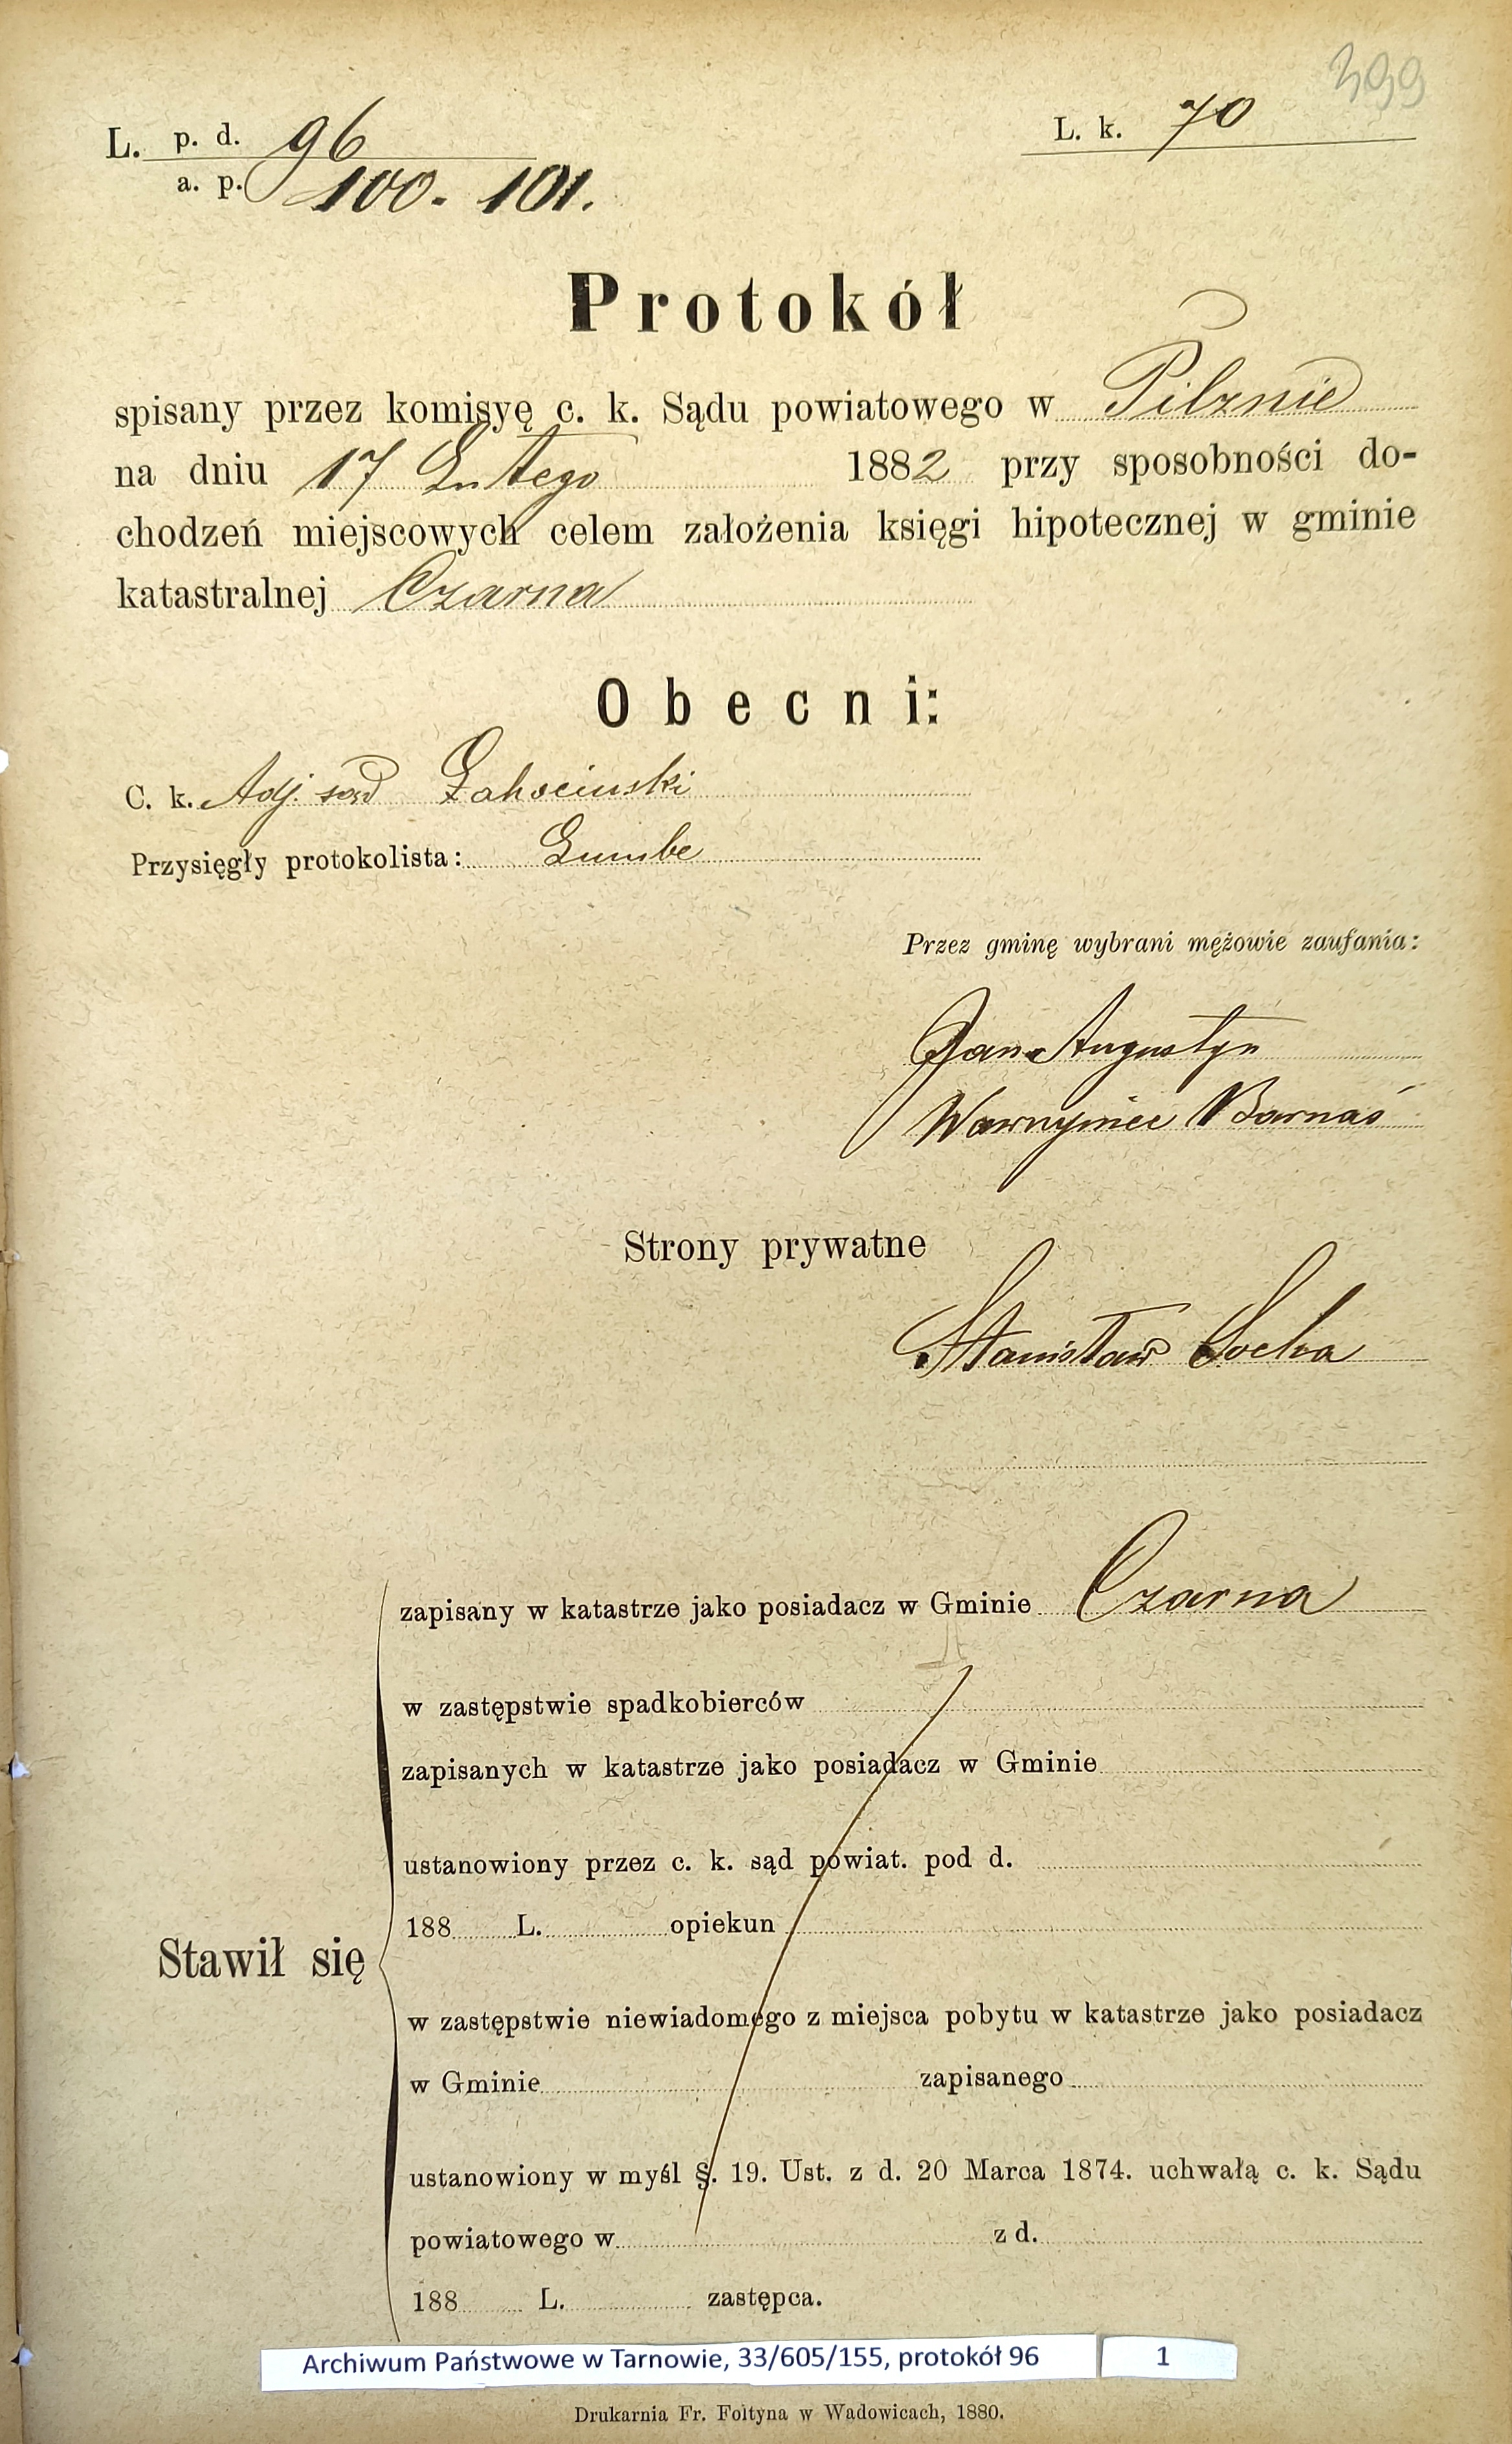 399
L. p. d. 96
a. p. 100. 101.
L. k. 70
Protokół
spisany przez komisyę c. k. Sądu powiatowego w Pilznie
na dniu 17 Lutego 1882 przy sposobności do-
chodzeń miejscowych celem założenia księgi hipotecznej w gminie
katastralnej Czarna
Obecni:
C. k. Adj. sąd
Przysięgły protokolista:
Przez gminę wybrani mężowie zaufania:
Jan Augustyn
Wawrzyniec Barnaś
Strony prywatne
Stanisław Socha
zapisany w katastrze jako posiadacz w Gminie Czarna
w zastępstwie spadkobierców
zapisanych w katastrze jako posiadacz w Gminie
ustanowiony przez c. k. sąd powiat. pod d.
188 L. opiekun
Stawił się
w zastępstwie niewiadomego z miejsca pobytu w katastrze jako posiadacz
w Gminie zapisanego
ustanowiony w myśl §. 19. Ust. z d. 20 Marca 1874. uchwałą c. k. Sądu
powiatowego w z d.
188 L. zastępca.
Archiwum Państwowe w Tarnowie, 33/605/155, protokół 96 1
Drukarnia Fr. Foltyna w Wadowicach, 1880.